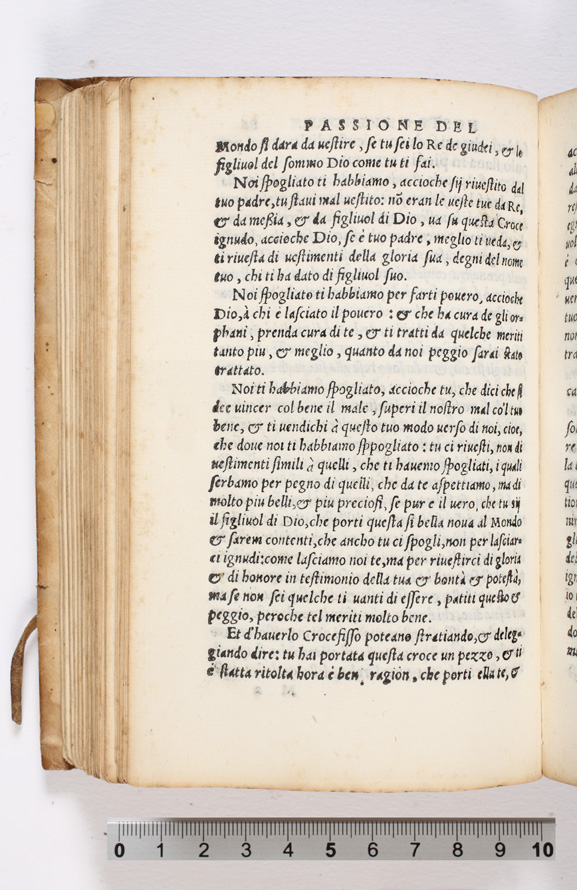 PASSIONE DEL
Mondo si dara da uestire, se tu sei lo Re de giudei, & lo
figliuol del sommo Dio come tu ti fai.
Noi spogliato ti habbiamo, accioche sij riuestito dal
tuo padre, tu staui mal uestito: nõ eran le ueste tue da Re,
& da meßia, & da figliuol di Dio, ua su questa Croce
ignudo, accioche Dio, se è tuo padre, meglio ti ueda, &
ti riuesta di uestimenti della gloria sua, degni del nome
tuo, chi ti ha dato di figliuol suo.
Noi spogliato ti habbiamo per farti pouero, accioche
Dio, à chi è lasciato il pouero: & che ha cura de gli or-
phani, prenda cura di te, & ti tratti da quelche meriti
tanto piu, & meglio, quanto da noi peggio sarai stato
trattato.
Noi ti habbiamo spogliato, accioche tu, che dici che si
dee uincer col bene il male, superi il nostro mal co'l tuo
bene, & ti uendichi à questo tuo modo uerso di noi, cioe,
che doue noi ti habbiamo sppogliato: tu ci riuesti, non di
uestimenti simili à quelli, che ti hauemo spogliati, i quali
serbamo per pegno di quelli, che da te aspettiamo, ma di
molto piu belli, & piu preciosi, se pur è il uero, che tu sij
il figliuol di Dio, che porti questa si bella noua al Mondo
& sarem contenti, che ancho tu ci spogli, non per lasciar-
ci ignudi: come lasciamo noi te, ma per riuestirci di gloria
& di honore in testimonio della tua & bontà & potestà,
ma se non sei quelche ti uanti di essere, patiti questo &
peggio, peroche tel meriti molto bene.
Et d'hauerlo Crocefisso poteano stratiando, & deleg-
giando dire: tu hai portata questa croce un pezzo, & ti
è statta ritolta hora è ben ragion, che porti ella te, &
0 1 2 3 4 5 6 7 8 9 10